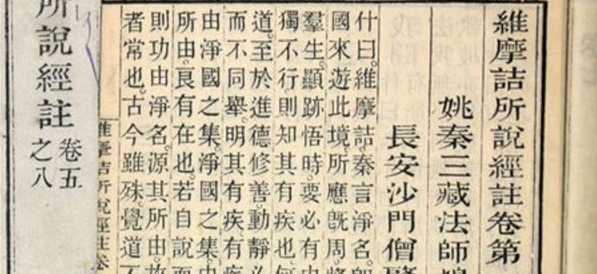 維摩詰所說經註卷第
姚秦三藏法師鳩
長安沙門僧肇
什曰。維摩詰。秦言淨名。即
國來遊此境。所應旣周。將
羣生。顯跡悟時。要必有由
獨不行。則知其有疾也。何
道。至於進德修善。動靜必
而不同舉。明其有疾。有疾
由淨國之集。淨國之集。由
所由。良有在也。若自說而
則功由淨名。源其所由。故
者常也。古今雖殊。覺道不
維摩詰所說經註卷
所說經註
卷五之八